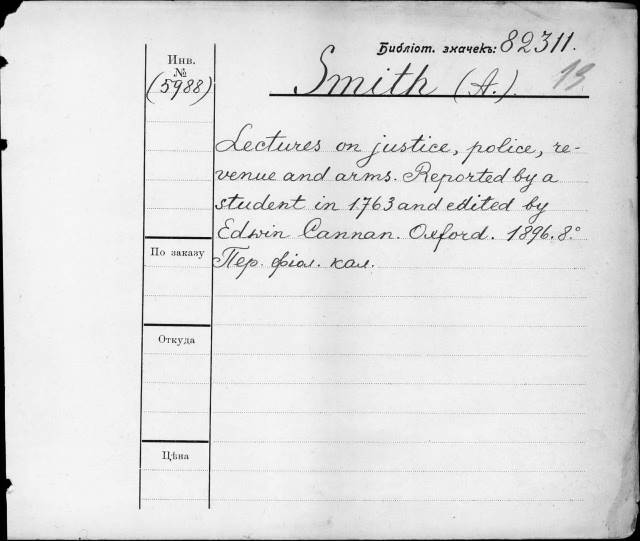 Библіот. значекъ: 82311.
Инв.
№
(5988)
Smith (A.).
13
Lectures on justice, police, re-
venue and arms. Reported by a
student in 1763 and edited by
Edwin Cannan. Oxford. 1896. 8.°
По заказу
Пер. фіол. кал.
Откуда
Цѣна